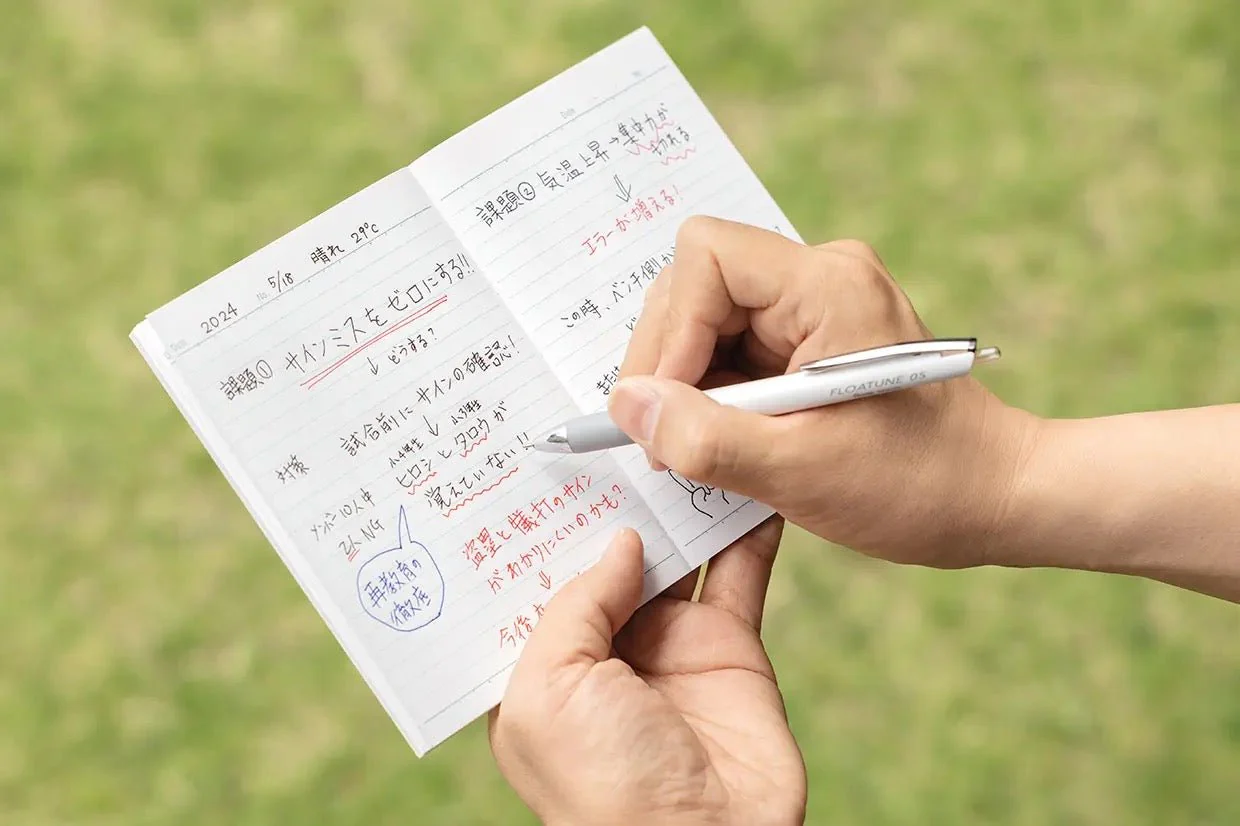 2024 5/18 晴れ 29℃
課題① サインミスをゼロにする!!
↓ どうする?
対策 試合前にサインの確認!
小4年生 ↓ 小3年生
ヒロシとタロウが
覚えていない!!
メンバー10人中
2人NG
再教育の
徹底
盗塁と犠打のサイン
がわかりにくいのかも?
⇓
今後
Date
課題② 気温上昇→集中力が
切れる
⇓
エラーが増える!
この時、ベンチ側が
または
FLOATUNE 05